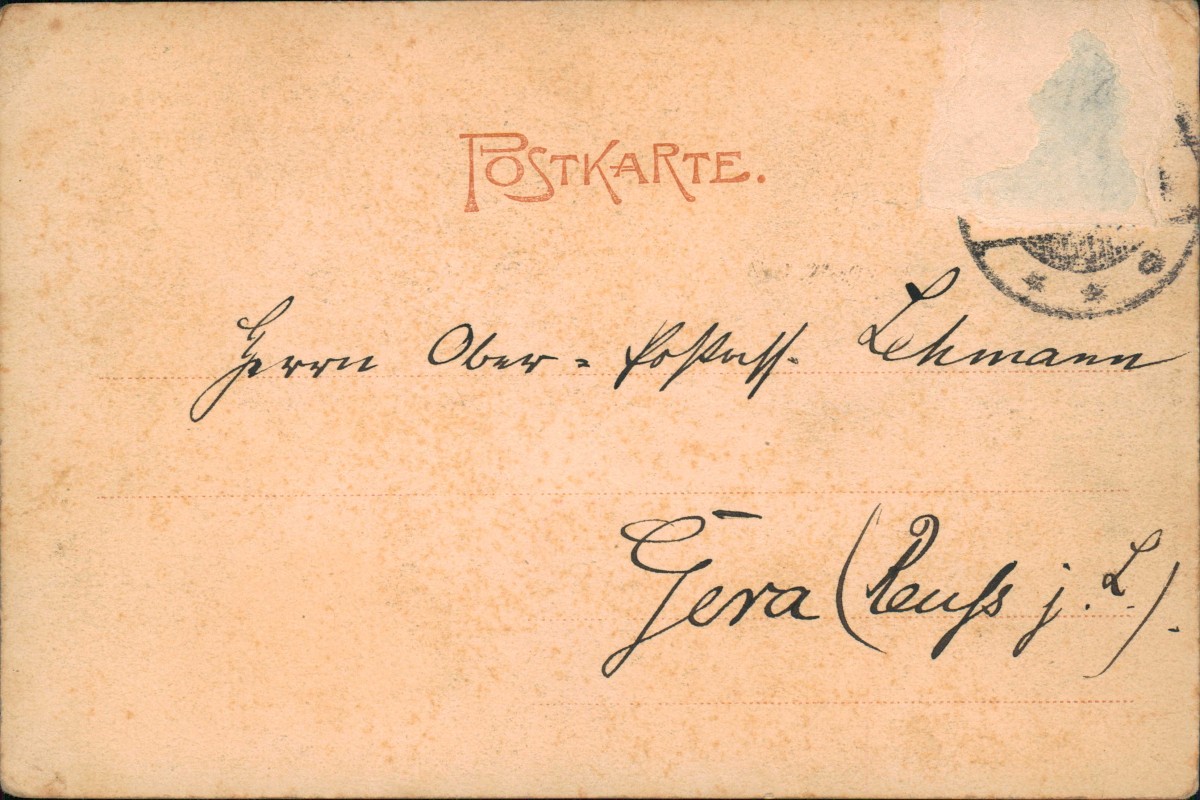 POSTKARTE.
Herrn Ober-Postass. Lehmann
Gera (Reuss j. L.).